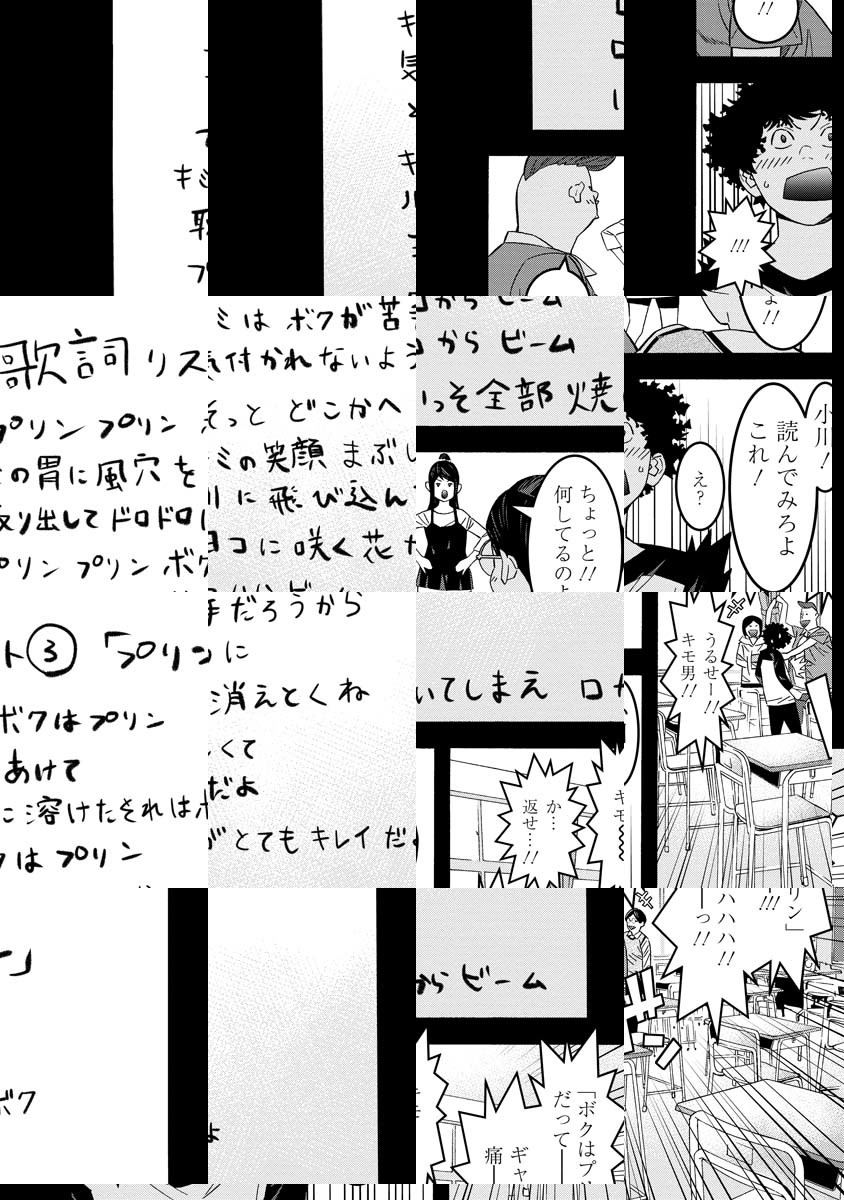 キミ
歌詞 リス
プリン プリン
の胃に風穴を
取り出してドロドロ
プリン プリン ボク
ト③「プリンに
ボクはプリン
あけて
に溶けたそれはボ
はプリン
」
ボク
ミは ボクが苦
気付かれないよう
そっと どこかへ
ミの笑顔 まぶし
川に 飛び込ん
ヨコに 咲く花
手だろうから
消えとくね
くて
だよ
がとてもキレイ だ
よ
から ビーム
から ビーム
いっそ全部 焼
いてしまえ ロ
から ビーム
ちょっと!!
何してるのよ
か…
返せ…!!
キモ
「ボクはプ
だって――
ギャ
痛
!!
!!!
よ!!
小川!
読んでみろよ
これ!
え?
うるせー!!
キモ男!!
リン」
!!!
ハハハ!!
ーっ!!